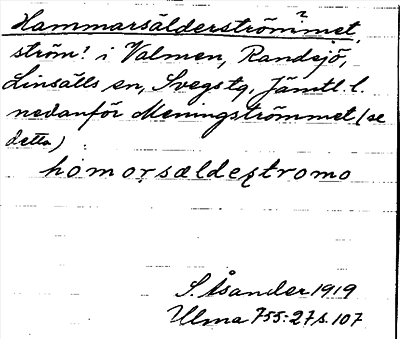 Hammarsälderströmmet,
ström! i Valmen, Randsjö,
Linsälls sn, Svegs tg, Jämtl. l.
nedanför Meningströmmet (se
detta)
homorsældeʂtromo
S. Åsander 1919
Ulma 755:27 s. 107